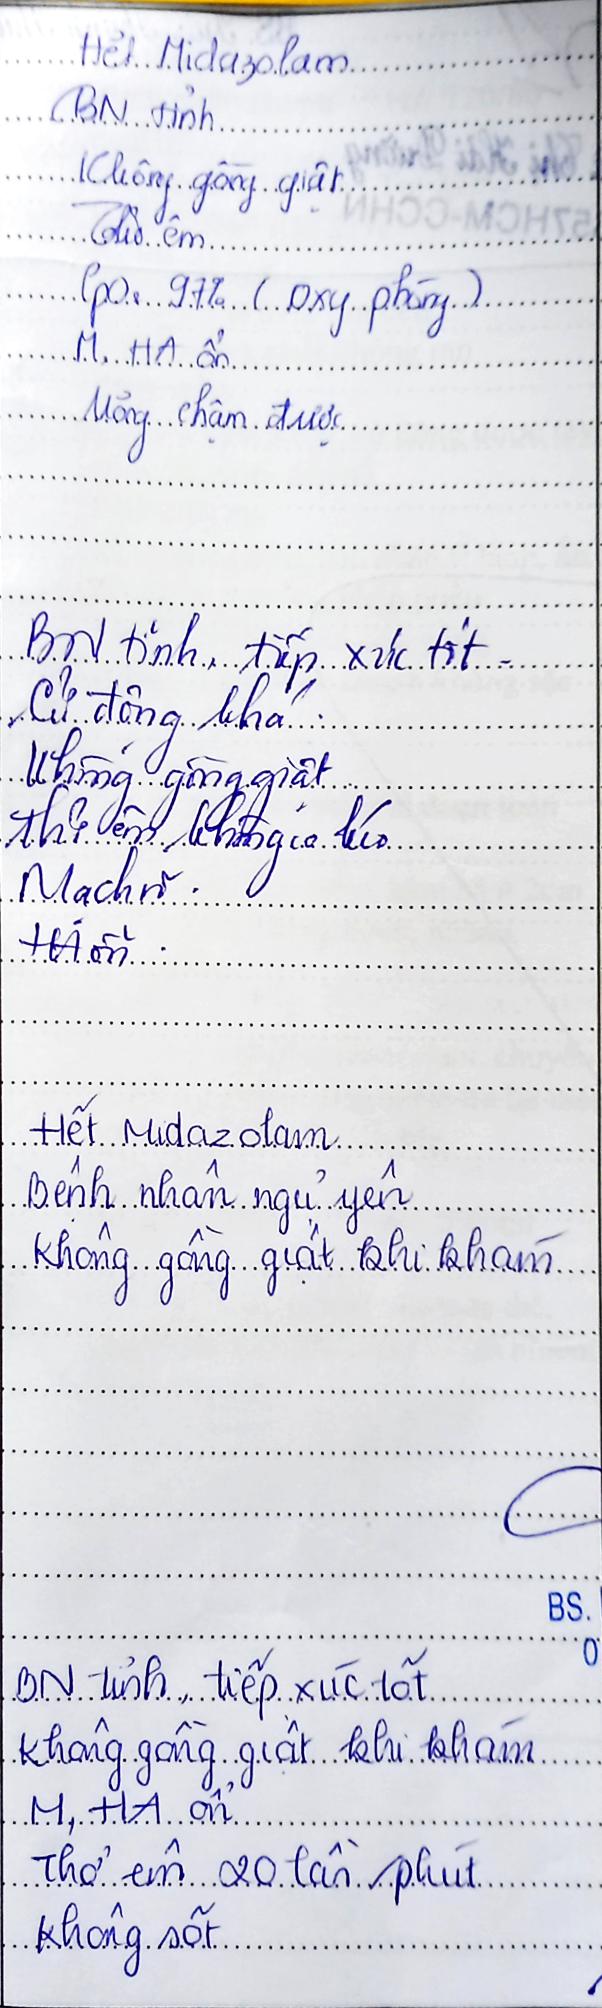 Hết Midazolam
BN tỉnh
Không gồng giật
Thở êm
SpO₂ 97% (oxy phòng)
M, HA ổn
Uống chậm được
BN tỉnh, tiếp xúc tốt.
Cử động khá.
Không gồng giật
Thở êm không co kéo
Mạch rõ.
HA ổn.
Hết Midazolam
Bệnh nhân ngủ yên
Không gồng giật khi khám
BS.
0
BN tỉnh, tiếp xúc tốt
Không gồng giật khi khám
M, HA ổn
Thở êm 20 lần/phút
Không sốt